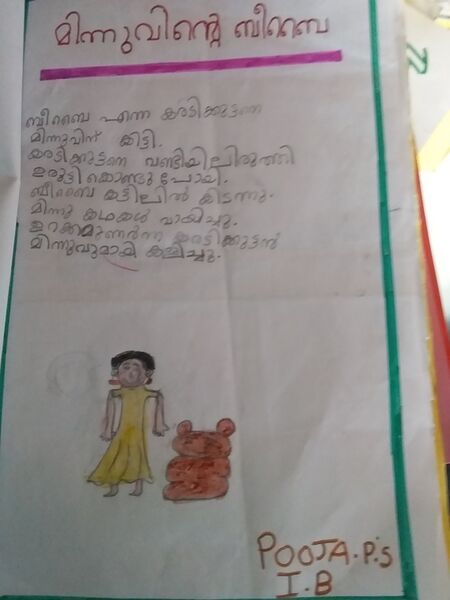 മിന്നുവിന്റെ ബീബൈ
ബീബൈ എന്ന കരടിക്കുട്ടനെ
മിന്നുവിന് കിട്ടി.
കരടിക്കുട്ടനെ വണ്ടിയിലിരുത്തി
ഉരുട്ടി കൊണ്ടു പോയി.
ബീബൈ കട്ടിലിൽ കിടന്നു.
മിന്നു കഥകൾ വായിച്ചു.
ഉറക്കമുണർന്ന കരടിക്കുട്ടൻ
മിന്നുവുമായി കളിച്ചു.
POOJA.P.S
I.B